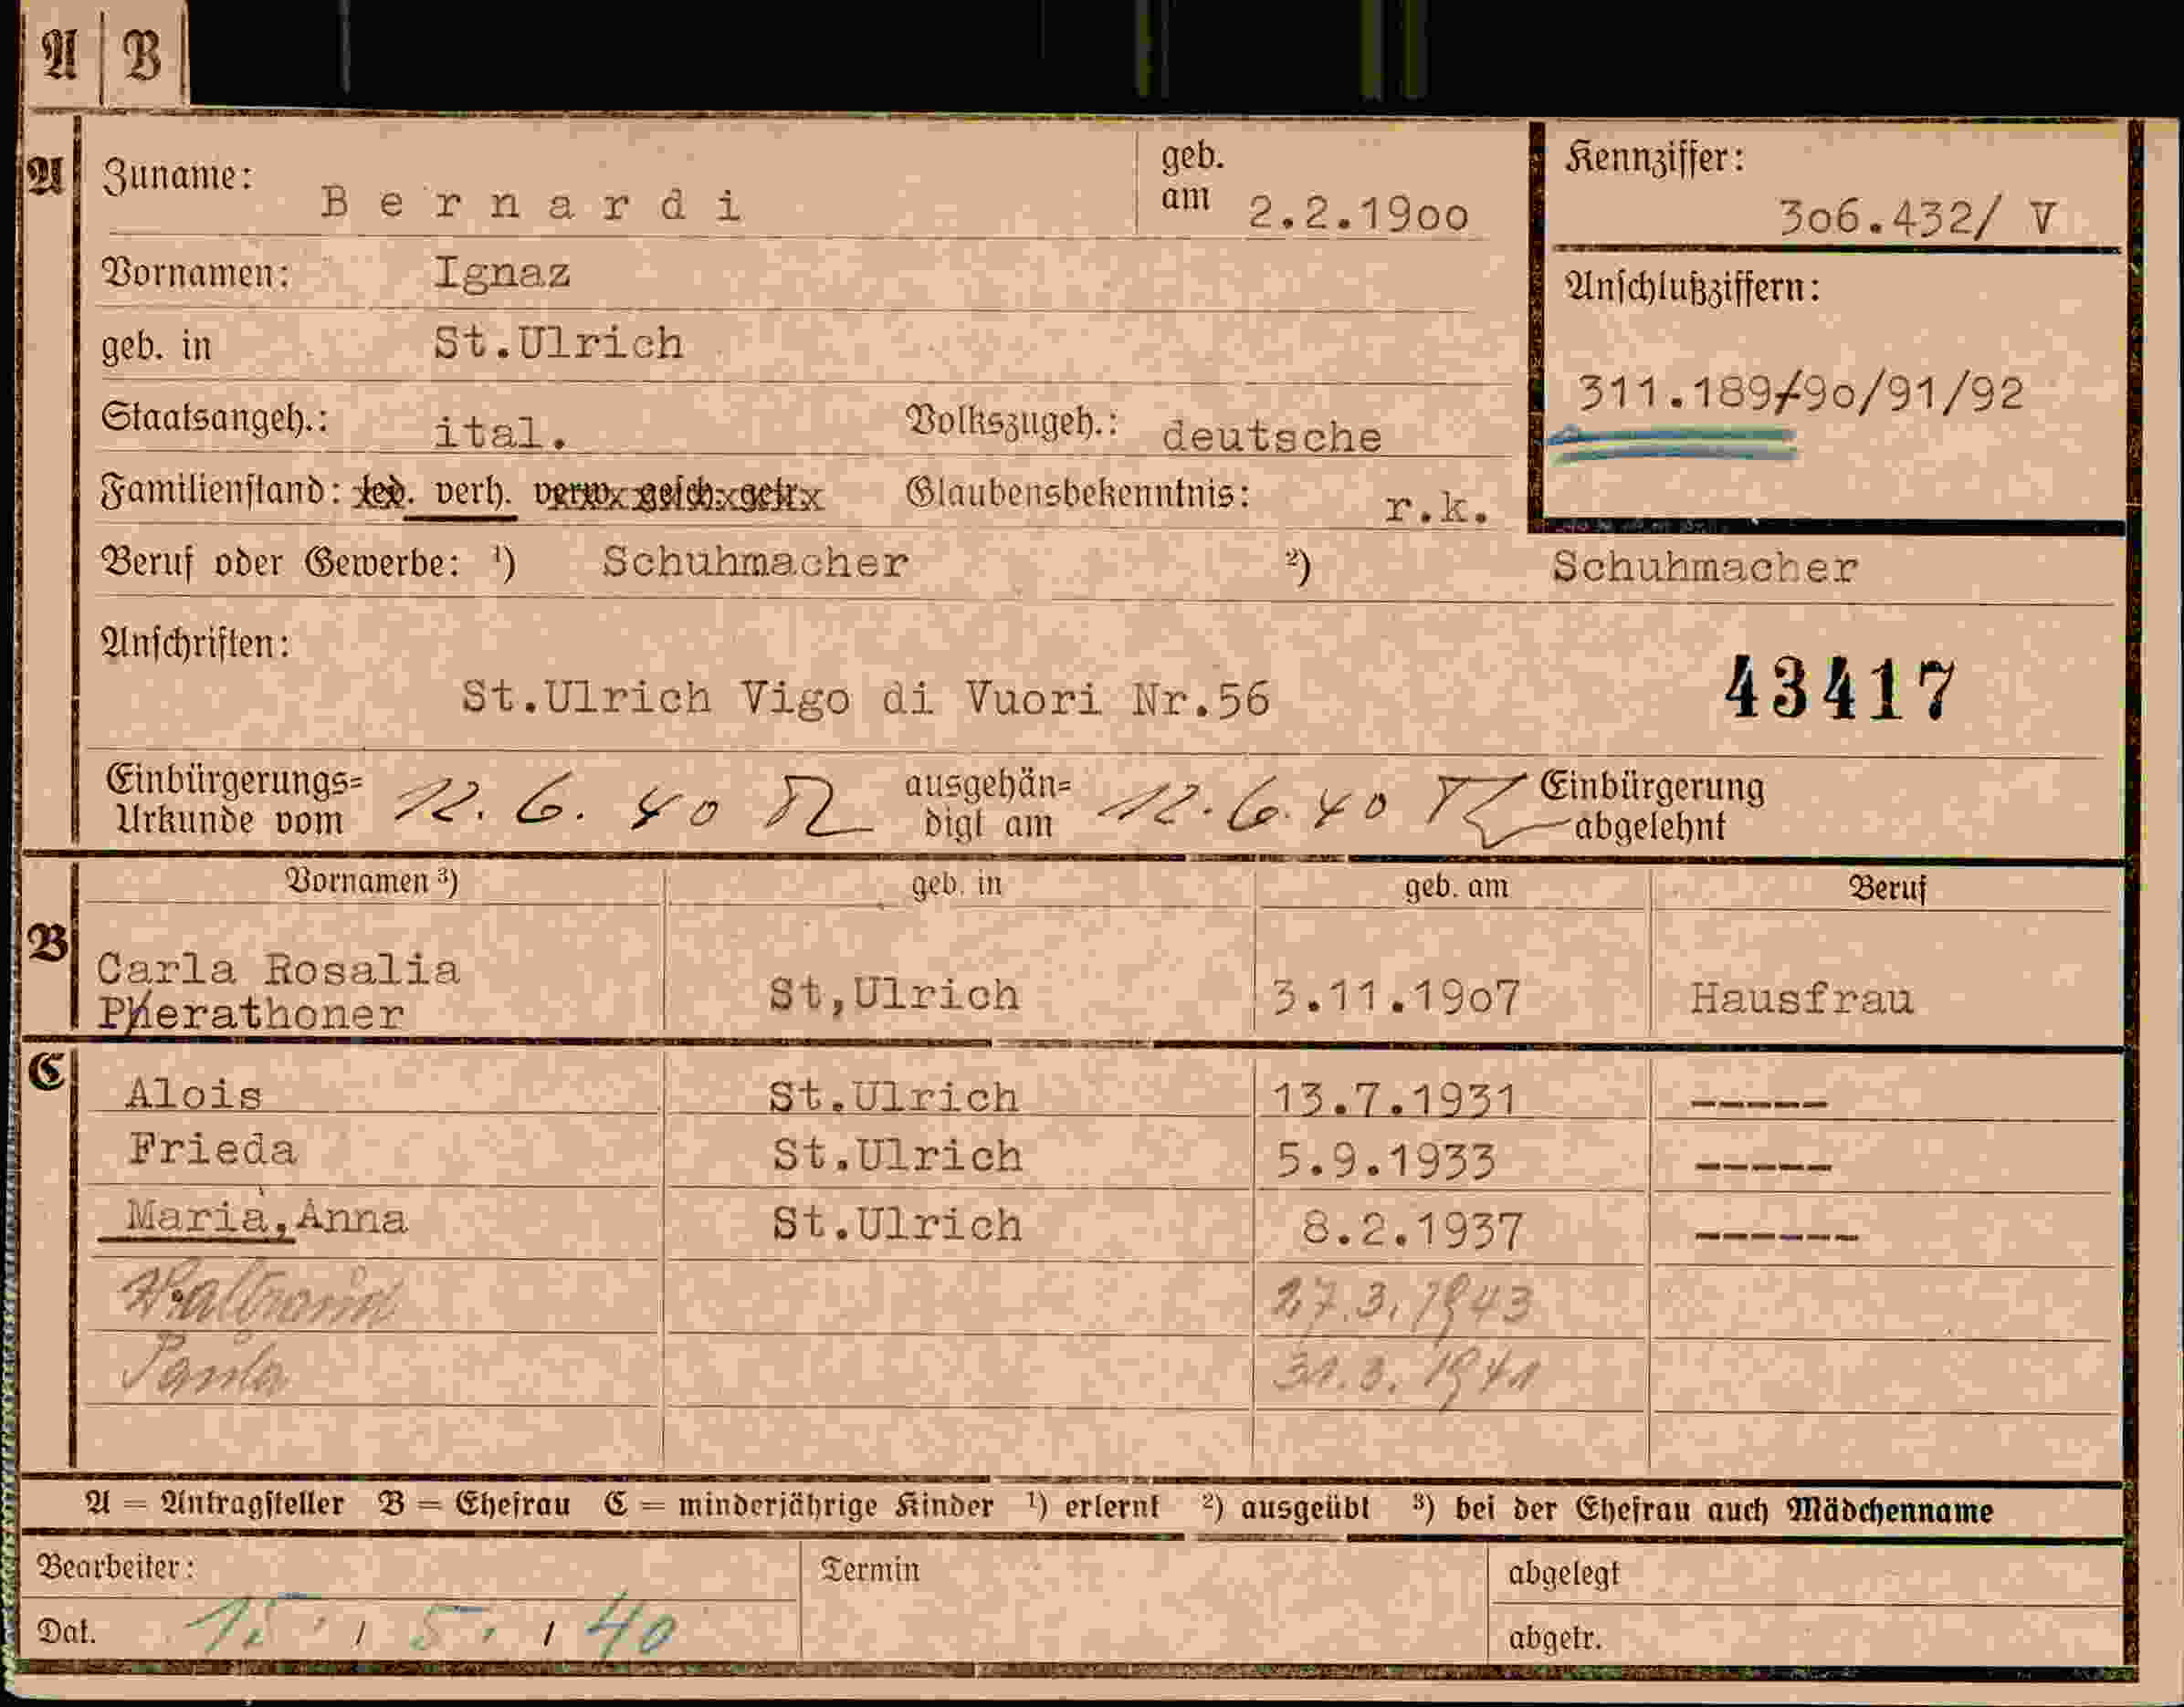 A B
A
Zuname: Bernardi
geb. am 2.2.1900
Kennziffer:
306.432/ V
Vornamen: Ignaz
Anschlußziffern:
geb. in St.Ulrich
311.189/90/91/92
Staatsangeh.: ital. Volkszugeh.: deutsche
Familienstand: led. verh. verw. gesch. getr. Glaubensbekenntnis: r.k.
Beruf oder Gewerbe: ¹) Schuhmacher ²) Schuhmacher
Anschriften:
St.Ulrich Vigo di Vuori Nr.56
43417
Einbürgerungs=
Urkunde vom 12.6.40
ausgehän=
digt am 12.6.40
Einbürgerung
abgelehnt
Vornamen ³) geb. in geb. am Beruf
B
Carla Rosalia
Perathoner St,Ulrich 3.11.1907 Hausfrau
C
Alois St.Ulrich 13.7.1931 -----
Frieda St.Ulrich 5.9.1933 -----
Maria,Anna St.Ulrich 8.2.1937 ------
Waltraud 27.3.1943
Paula 31.3.1941
A = Antragsteller B = Ehefrau C = minderjährige Kinder ¹) erlernt ²) ausgeübt ³) bei der Ehefrau auch Mädchenname
Bearbeiter: Termin abgelegt
Dat. 15. / 5. / 40 abgetr.